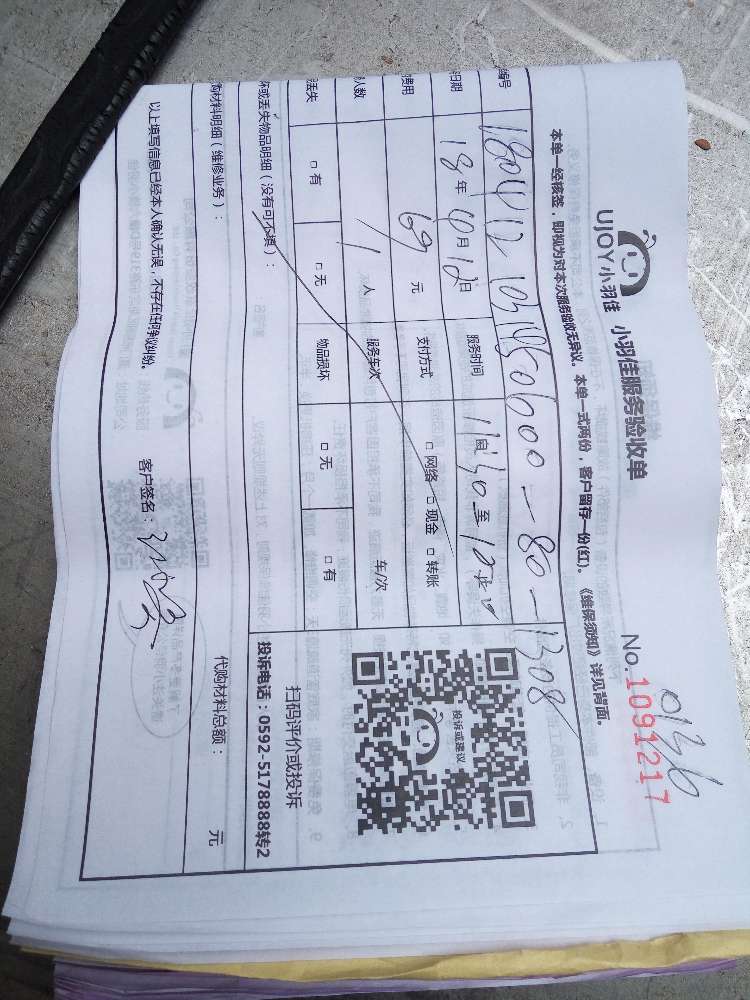 UJOY小羽佳 小羽佳服务验收单
0136
No.1091217
本单一经核签，即视为对本次服务验收无异议。本单一式两份，客户留存一份(红)。《维保须知》详见背面。
编号
日期 18年 月12日 服务时间 11点30至12
费用 69元 支付方式 □网络 □现金 □转账
人数 1人 服务车次 车/次
丢失 □有 □无 物品损坏 □无 □有
坏或丢失物品明细（没有可不填）：
投诉或建议
扫码评价或投诉
投诉电话：0592-5178888转2
购材料明细（维修业务）： 代购材料总额： 元
以上填写信息已经本人确认无误，不存在任何争议纠纷。 客户签名：